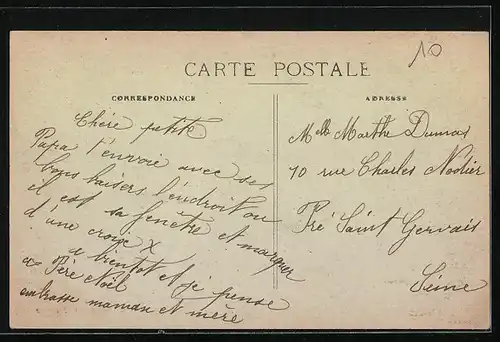 10
CARTE POSTALE
CORRESPONDANCE
ADRESSE
Chère petite
Papa t'envoie avec ses
bons baisers l'endroit ou
il est sa fenêtre est marquer
d'une croix x
a bientot et je pense
au Père Noël
embrasse maman et mère
Melle Marthe Dumas
70 rue Charles Nodier
Pré Saint Gervais
Seine